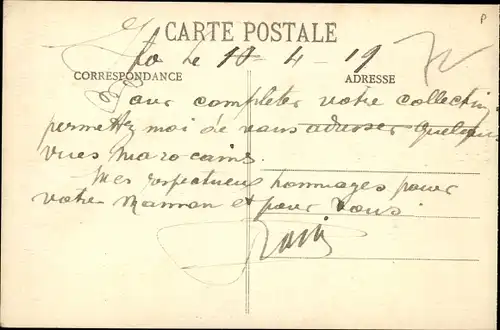 CARTE POSTALE
le 10-4-19
CORRESPONDANCE
ADRESSE
Pour completer votre collection
permettez moi de vous adresser quelques
vues marocaines.
Mes respectueux hommages pour
votre Maman et pour Vous.
P